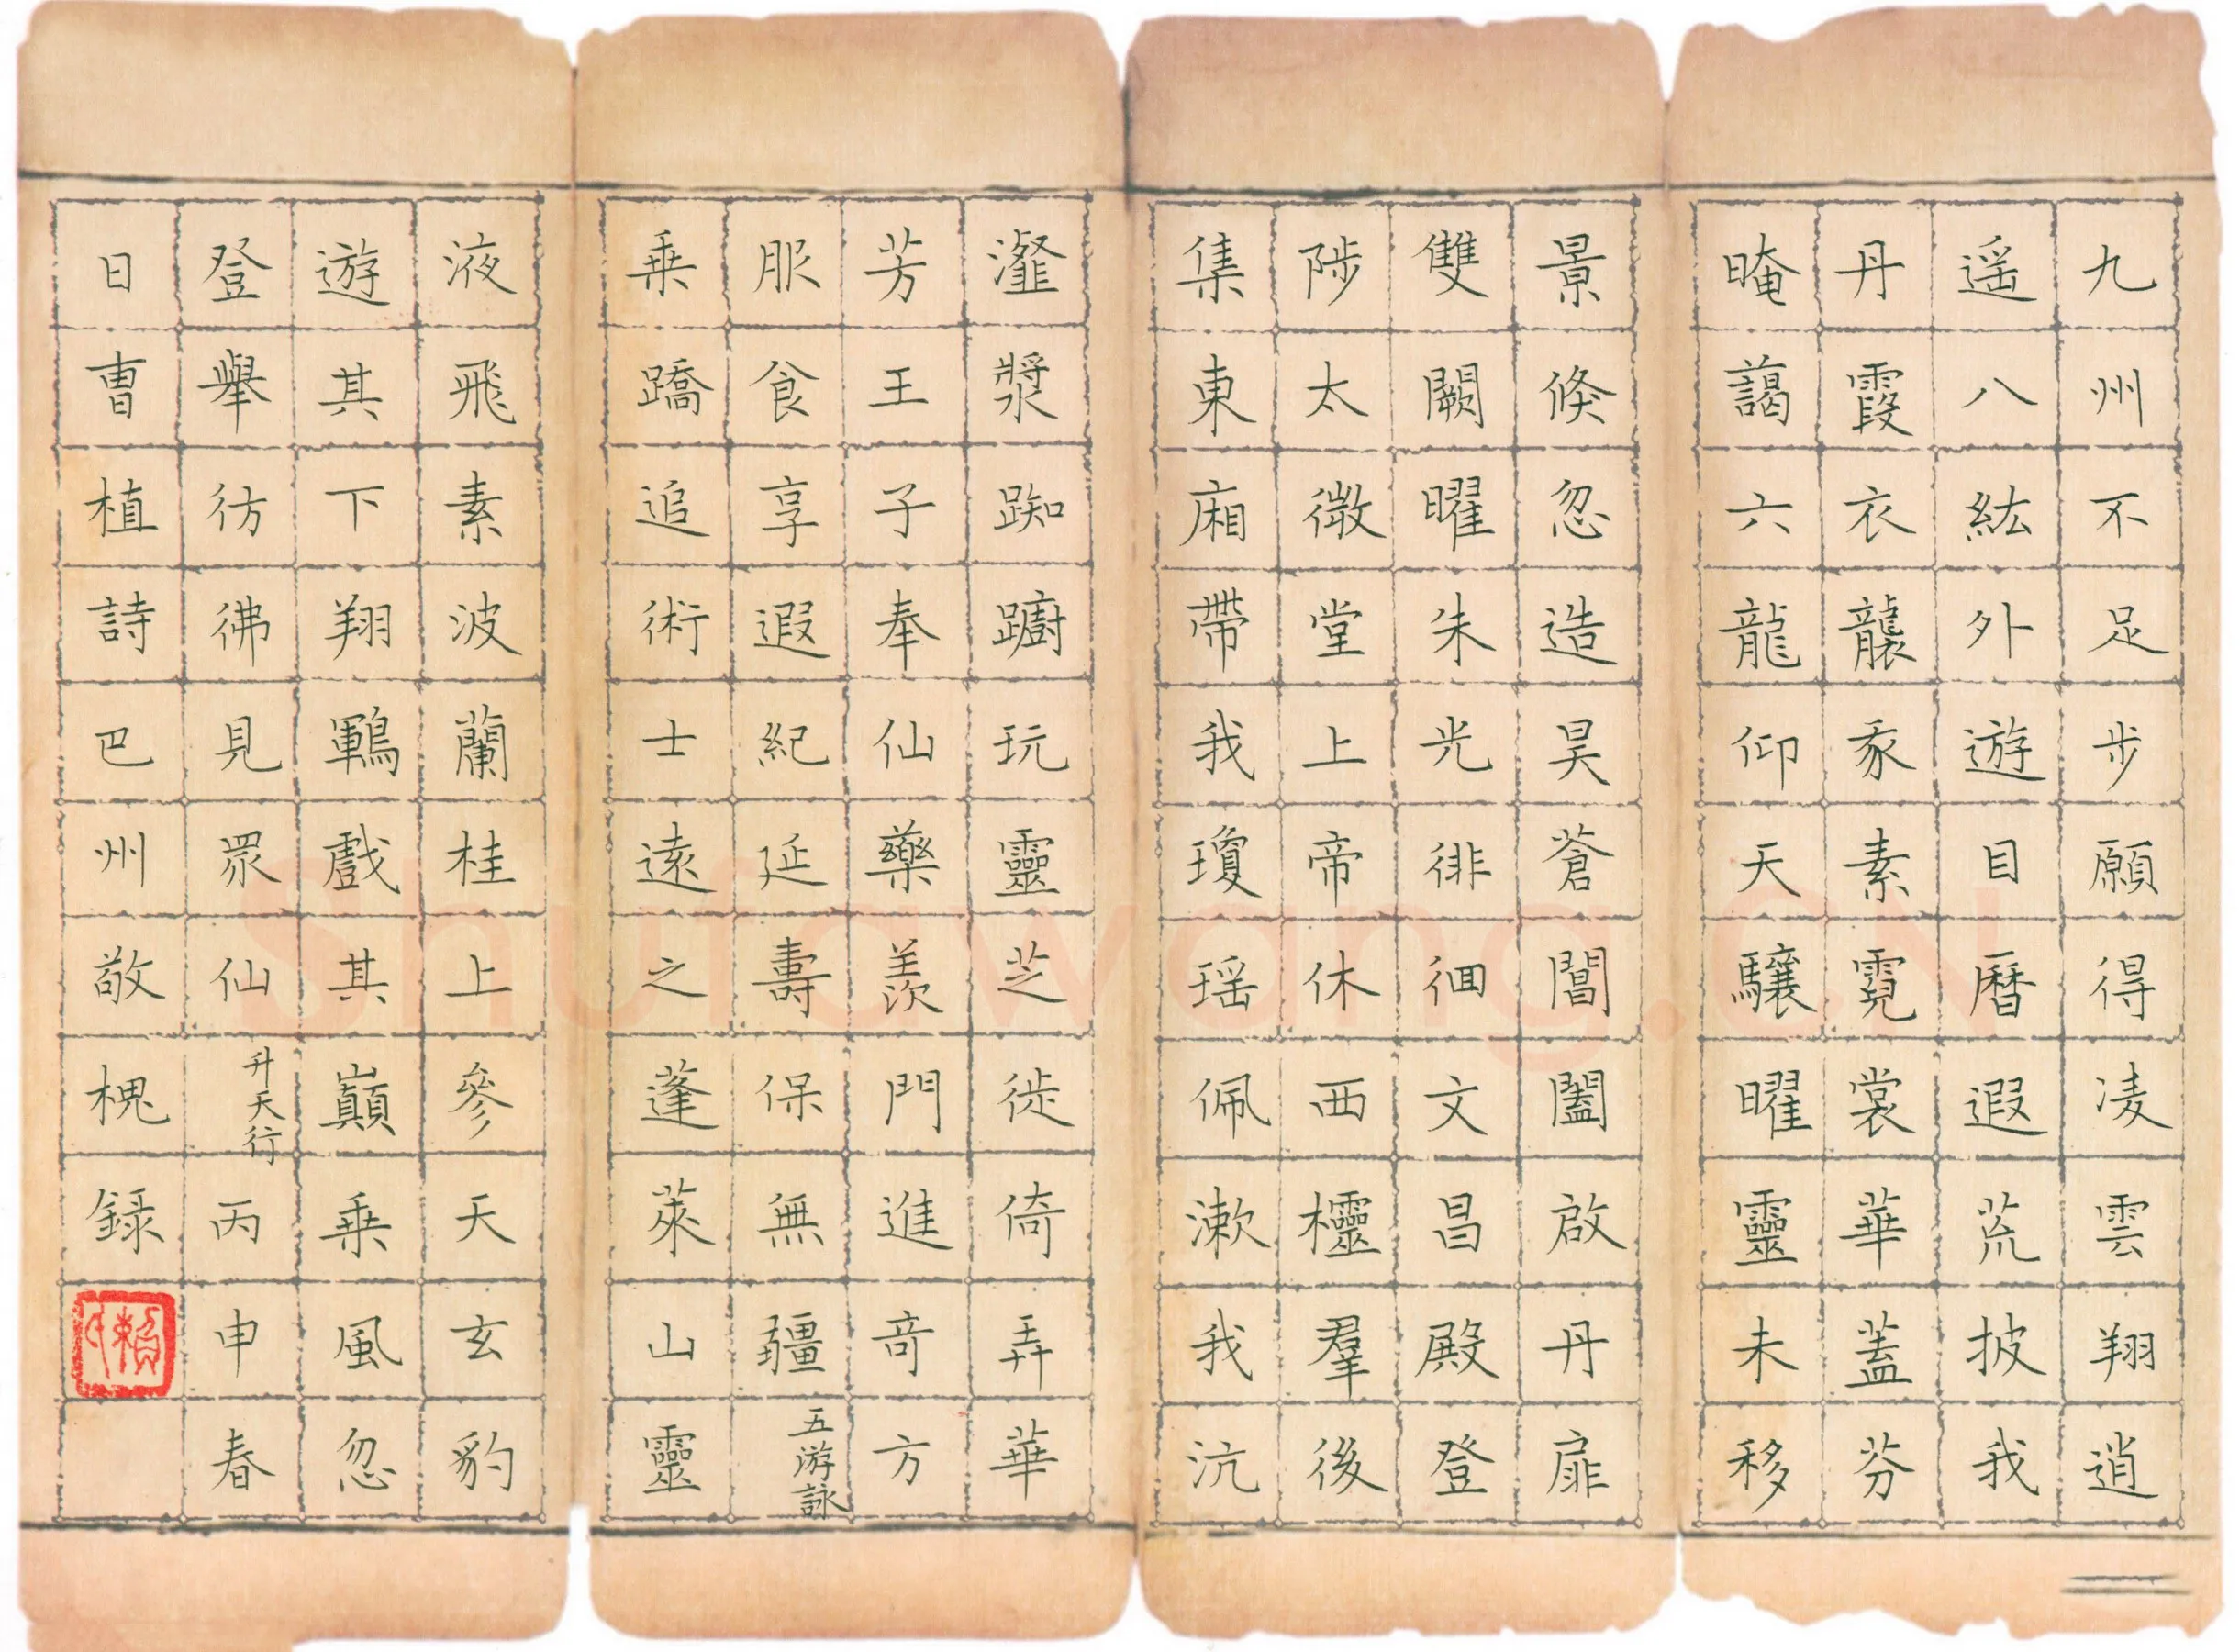 九州不足步願得凌雲翔逍
遥八紘外遊目曆遐荒披我
丹霞衣襲我素霓裳華蓋芬
晻藹六龍仰天驤曜靈未移
景倏忽造昊蒼閶闔啟丹扉
雙闕曜朱光徘徊文昌殿登
陟太微堂上帝休西櫺羣後
集東廂帶我瓊瑶佩漱我沆
瀣漿踟躕玩靈芝徙倚弄華
芳王子奉仙藥羨門進奇方
服食享遐紀延壽保無疆五游詠
乗蹻追術士遠之蓬萊山靈
液飛素波蘭桂上參天玄豹
遊其下翔鶤戲其巔乗風忽
登舉彷彿見眾仙升天行丙申春
日曹植詩巴州敬槐録
賴
Shufawang.CN